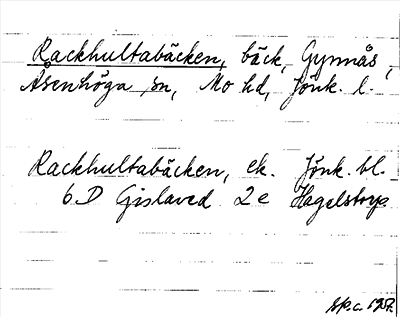 Rackhultabäcken, bäck, Gynnås,
Åsenhöga sn, Mo hd, Jönk. l.
Rackhultabäcken, ek. Jönk. bl.
6 D Gislaved 2 e Hagelstorp